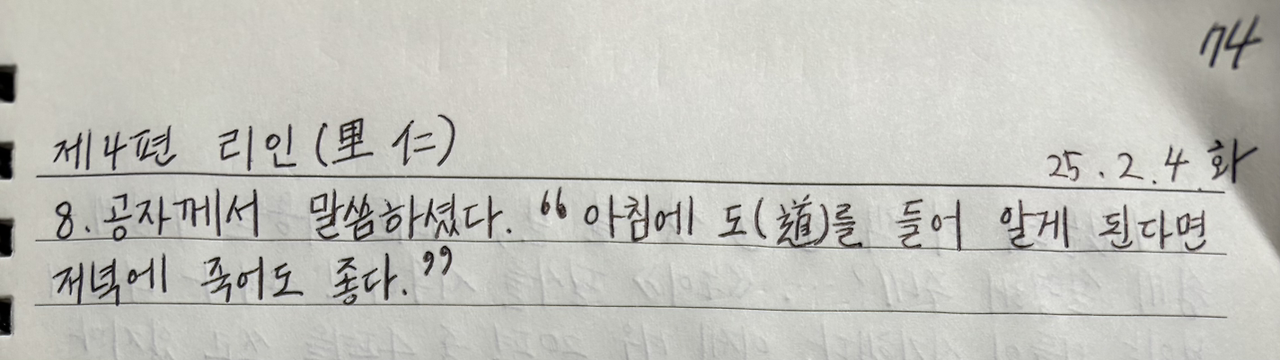 74
제4편 리인(里仁)
25.2.4 화
8. 공자께서 말씀하셨다. “아침에 도(道)를 들어 알게 된다면
저녁에 죽어도 좋다.”